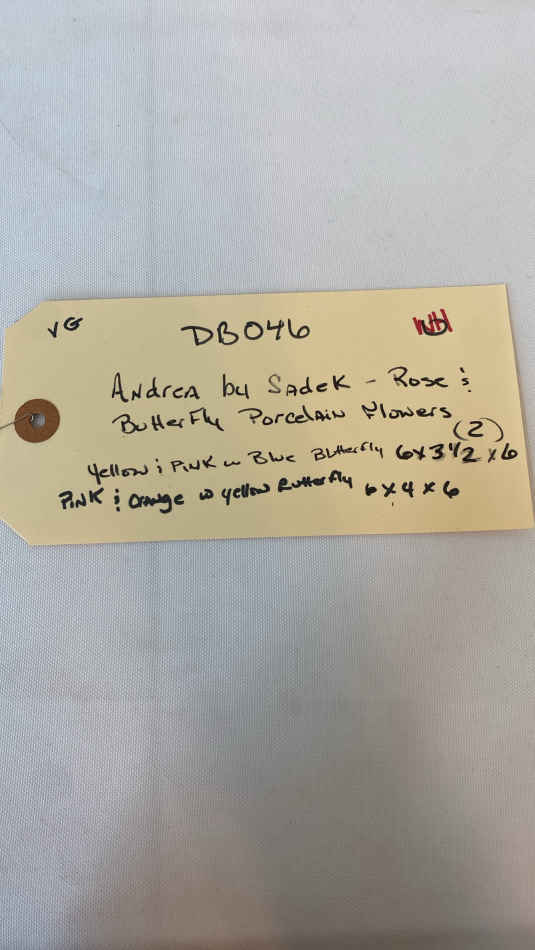 VG DB046 WH
Andrea by Sadek - Rose &
Butterfly Porcelain Flowers
(2)
Yellow & Pink w Blue Butterfly 6x3 1/2 x 6
Pink & Orange w yellow Butterfly 6 x 4 x 6